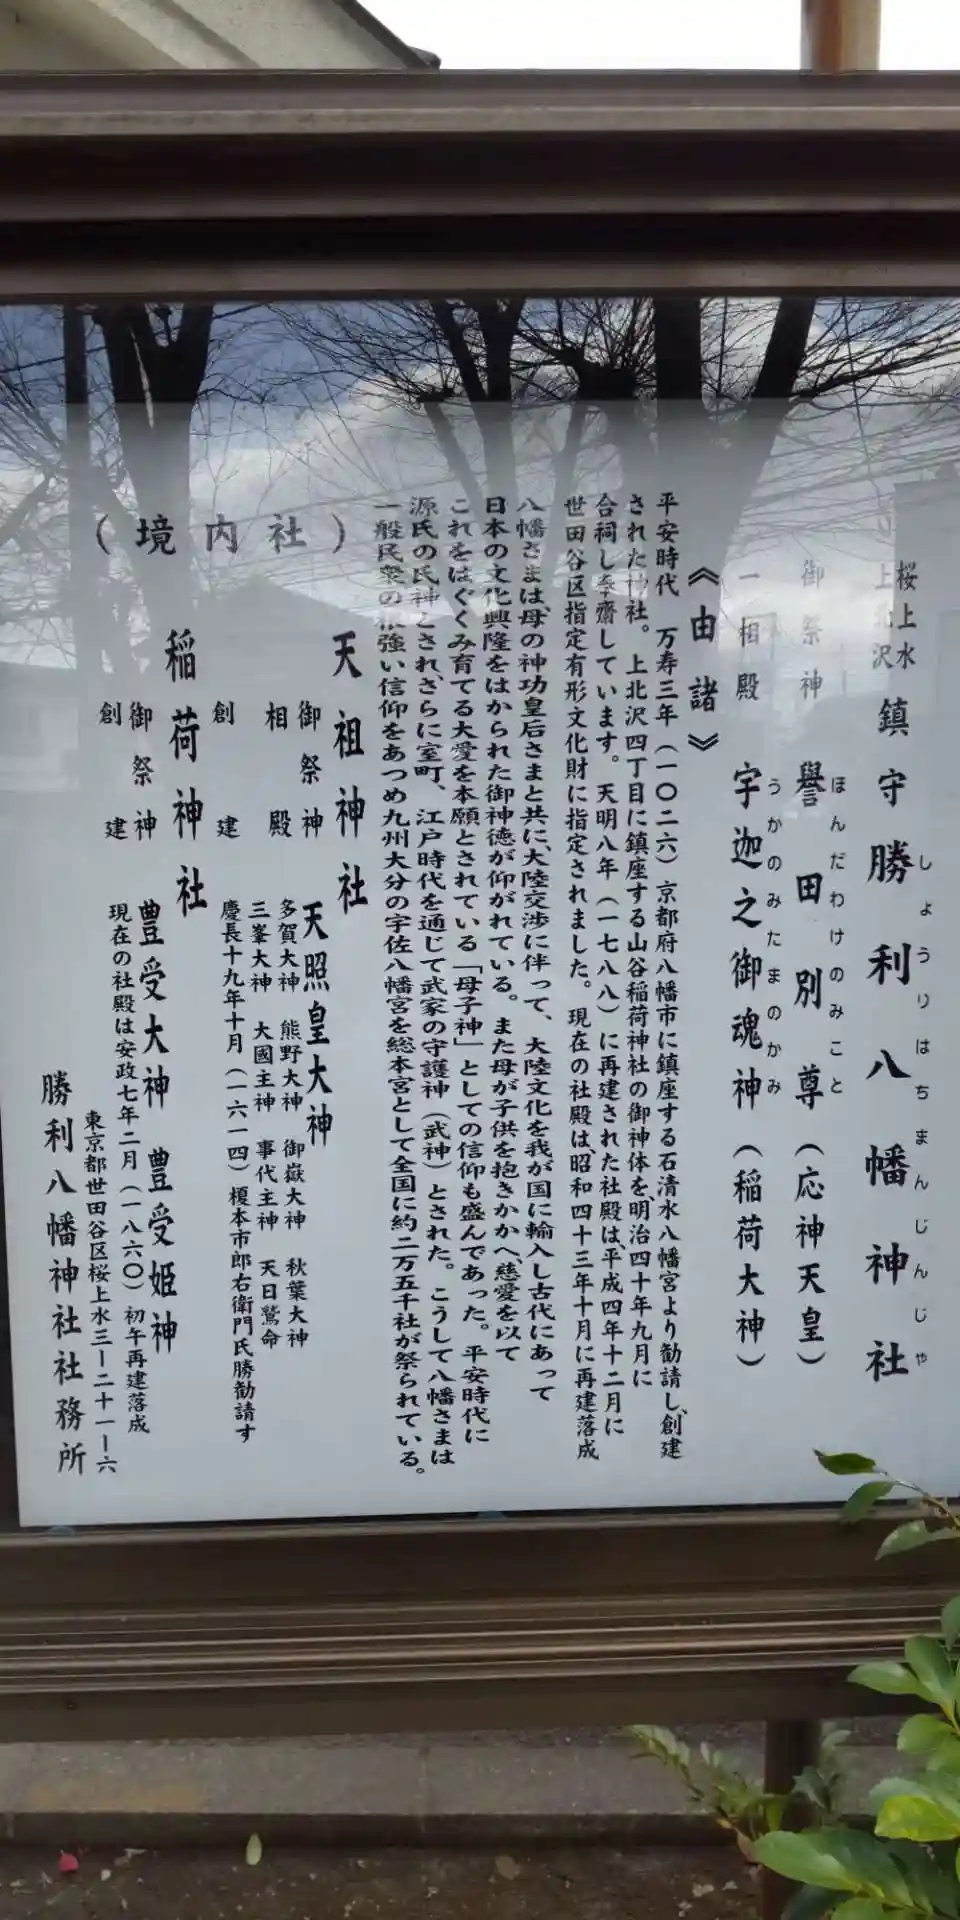 桜上水
上北沢
鎮守 勝利八幡神社
しょうりはちまんじんじゃ
御祭神 誉田別尊(応神天皇)
ほんだわけのみこと
一相殿 宇迦之御魂神(稲荷大神)
うかのみたまのかみ
《由諸》
平安時代 万寿三年(一〇二六)京都府八幡市に鎮座する石清水八幡宮より勧請し、創建
された神社。上北沢四丁目に鎮座する山谷稲荷神社の御神体を、明治四十年九月に
合祠し奉齋しています。天明八年(一七八八)に再建された社殿は、平成四年十二月に
世田谷区指定有形文化財に指定されました。現在の社殿は、昭和四十三年十月に再建落成
八幡さまは、母の神功皇后さまと共に、大陸交渉に伴って、大陸文化を我が国に輸入し古代にあって
日本の文化興隆をはかられた御神徳が仰がれている。また母が子供を抱きかかへ、慈愛を以て
これをはぐくみ育てる大愛を本願とされている「母子神」としての信仰も盛んであった。平安時代に
源氏の氏神とされ、さらに室町、江戸時代を通じて武家の守護神(武神)とされた。こうして八幡さまは
一般民衆の根強い信仰をあつめ九州大分の宇佐八幡宮を総本宮として全国に約二万五千社が祭られている。
(境内社)
天祖神社
御祭神 天照皇大神
相殿 多賀大神 熊野大神 御嶽大神 秋葉大神
三峯大神 大國主神 事代主神 天日鷲命
創建 慶長十九年十月(一六一四)榎本市郎右衛門氏勝勧請す
稲荷神社
御祭神 豊受大神 豊受姫神
創建 現在の社殿は安政七年二月(一八六〇)初午再建落成
東京都世田谷区桜上水三ー二十一ー六
勝利八幡神社社務所